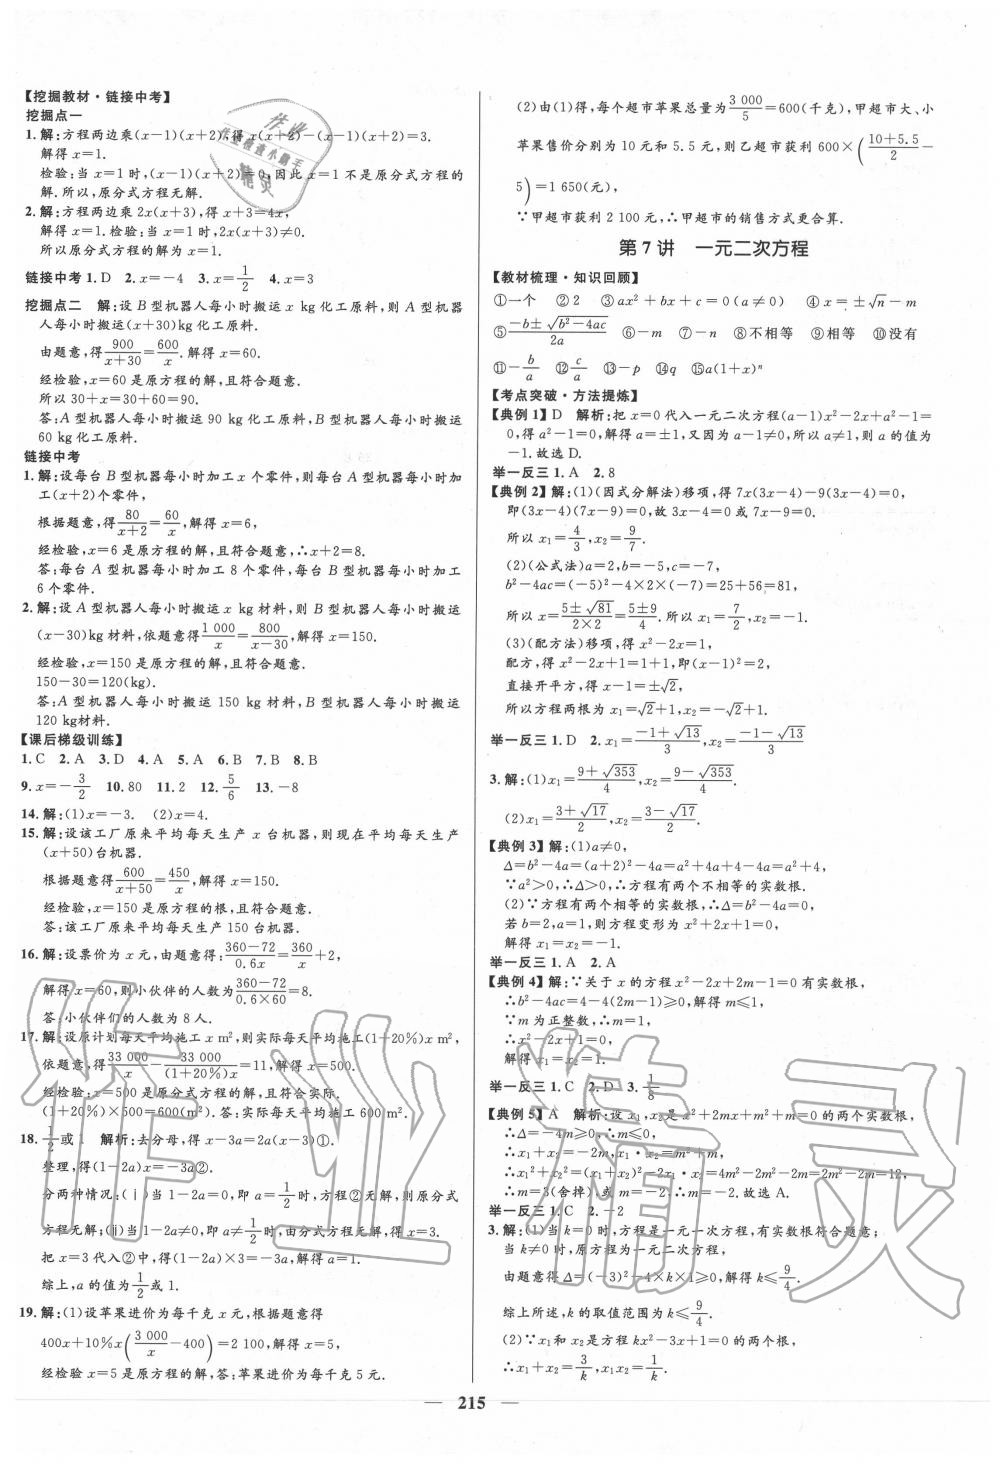 【挖掘教材·链接中考】
挖掘点一
1.解:方程两边乘(x-1)(x+2),得x(x+2)-(x-1)(x+2)=3.
解得x=1.
检验:当x=1时,(x-1)(x+2)=0,因此x=1不是原分式方程的
解.所以,原分式方程无解.
2.解:方程两边乘2x(x+3),得x+3=4x,
解得x=1.检验:当x=1时,2x(x+3)≠0.
所以原分式方程的解为x=1.
链接中考1.D 2.x=-4 3.x=1/2 4.x=3
挖掘点二 解:设B型机器人每小时搬运x kg化工原料,则A型机器
人每小时搬运(x+30)kg化工原料.
由题意,得900/(x+30)=600/x.解得x=60.
经检验,x=60是原方程的解,且符合题意.
所以30+x=30+60=90.
答:A型机器人每小时搬运90 kg化工原料,B型机器人每小时搬运
60 kg化工原料.
链接中考
1.解:设每台B型机器每小时加工x个零件,则每台A型机器每小时加
工(x+2)个零件,
根据题意,得80/(x+2)=60/x,解得x=6,
经检验,x=6是原方程的解,且符合题意,∴x+2=8.
答:每台A型机器每小时加工8个零件,每台B型机器每小时加工
6个零件.
2.解:设A型机器人每小时搬运x kg材料,则B型机器人每小时搬运
(x-30)kg材料,依题意得1 000/x=800/(x-30),解得x=150.
经检验,x=150是原方程的解,且符合题意.
150-30=120(kg).
答:A型机器人每小时搬运150 kg材料,B型机器人每小时搬运
120 kg材料.
【课后梯级训练】
1.C 2.A 3.D 4.A 5.A 6.B 7.B 8.B
9.x=-3/2 10.80 11.2 12.5/6 13.-8
14.解:(1)x=-3. (2)x=4.
15.解:设该工厂原来平均每天生产x台机器,则现在平均每天生产
(x+50)台机器.
根据题意得600/(x+50)=450/x,解得x=150.
经检验,x=150是原方程的根,且符合题意.
答:该工厂原来平均每天生产150台机器.
16.解:设票价为x元,由题意得:(360-72)/0.6x=360/x+2,
解得x=60,则小伙伴的人数为(360-72)/(0.6×60)=8.
答:小伙伴们的人数为8人.
17.解:设原计划每天平均施工x m²,则实际每天平均施工(1+20%)x m²,
依题意,得33 000/x-33 000/(1+20%)x=11,解得x=500.
经检验,x=500是原分式方程的解,且符合实际.
(1+20%)×500=600(m²).答:实际每天平均施工600 m².
18.1/2或1 解析:去分母,得x-3a=2a(x-3)①.
整理,得(1-2a)x=-3a②.
分两种情况:(ⅰ)当1-2a=0,即a=1/2时,方程②无解,则原分式
方程无解;(ⅱ)当1-2a≠0,即a≠1/2时,由分式方程无解,得x=3.
把x=3代入②中,得(1-2a)×3=-3a,解得a=1.
综上,a的值为1/2或1.
19.解:(1)设苹果进价为每千克x元,根据题意得
400x+10%x(3 000/x-400)=2 100,解得x=5,
经检验x=5是原方程的解,答:苹果进价为每千克5元.
(2)由(1)得,每个超市苹果总量为3 000/5=600(千克),甲超市大、小
苹果售价分别为10元和5.5元,则乙超市获利600×((10+5.5)/2-
5)=1 650(元),
∵甲超市获利2 100元,∴甲超市的销售方式更合算.
第7讲 一元二次方程
【教材梳理·知识回顾】
①一个 ②2 ③ax²+bx+c=0(a≠0) ④x=±√n-m
⑤(-b±√(b²-4ac))/2a ⑥-m ⑦-n ⑧不相等 ⑨相等 ⑩没有
⑪-b/a ⑫c/a ⑬-p ⑭q ⑮a(1+x)ⁿ
【考点突破·方法提炼】
【典例1】D 解析:把x=0代入一元二次方程(a-1)x²-2x+a²-1=
0,得a²-1=0,解得a=±1,又因为a-1≠0,所以a≠1,则a的值为
-1.故选D.
举一反三1.A 2.8
【典例2】解:(1)(因式分解法)移项,得7x(3x-4)-9(3x-4)=0,
即(3x-4)(7x-9)=0,故3x-4=0或7x-9=0.
所以x₁=4/3,x₂=9/7.
(2)(公式法)a=2,b=-5,c=-7,
b²-4ac=(-5)²-4×2×(-7)=25+56=81,
所以x=(5±√81)/(2×2)=(5±9)/4.所以x₁=7/2,x₂=-1.
(3)(配方法)移项,得x²-2x=1,
配方,得x²-2x+1=1+1,即(x-1)²=2,
直接开平方,得x-1=±√2,
所以方程两根为x₁=√2+1,x₂=-√2+1.
举一反三1.D 2.x₁=(-1+√13)/3,x₂=(-1-√13)/3
3.解:(1)x₁=(9+√353)/4,x₂=(9-√353)/4.
(2)x₁=(3+√17)/2,x₂=(3-√17)/2.
【典例3】解:(1)a≠0,
Δ=b²-4a=(a+2)²-4a=a²+4a+4-4a=a²+4,
∵a²>0,∴Δ>0,∴方程有两个不相等的实数根.
(2)∵方程有两个相等的实数根,∴Δ=b²-4a=0,
若b=2,a=1,则方程变形为x²+2x+1=0,
解得x₁=x₂=-1.
举一反三1.A 2.A
【典例4】解:∵关于x的方程x²-2x+2m-1=0有实数根,
∴b²-4ac=4-4(2m-1)≥0,解得m≤1,
∵m为正整数,∴m=1,
∴x²-2x+1=0,
解得x₁=x₂=1.
举一反三1.C 2.D 3.1/8
【典例5】A 解析:设x₁,x₂是x²+2mx+m²+m=0的两个实数根,
∴Δ=-4m≥0,∴m≤0,
∴x₁+x₂=-2m,x₁·x₂=m²+m,
∴x₁²+x₂²=(x₁+x₂)²-2x₁·x₂=4m²-2m²-2m=2m²-2m=12,
∴m=3(舍掉)或m=-2.∴m=-2.故选A.
举一反三1.C 2.-2
3.解:(1)当k=0时,方程是一元一次方程,有实数根符合题意;
当k≠0时,原方程为一元二次方程,
由题意得Δ=(-3)²-4×k×1≥0,解得k≤9/4.
综上所述,k的取值范围为k≤9/4.
(2)∵x₁和x₂是方程kx²-3x+1=0的两个根,
∴x₁+x₂=3/k,x₁x₂=1/k.
— 215 —
作业精灵